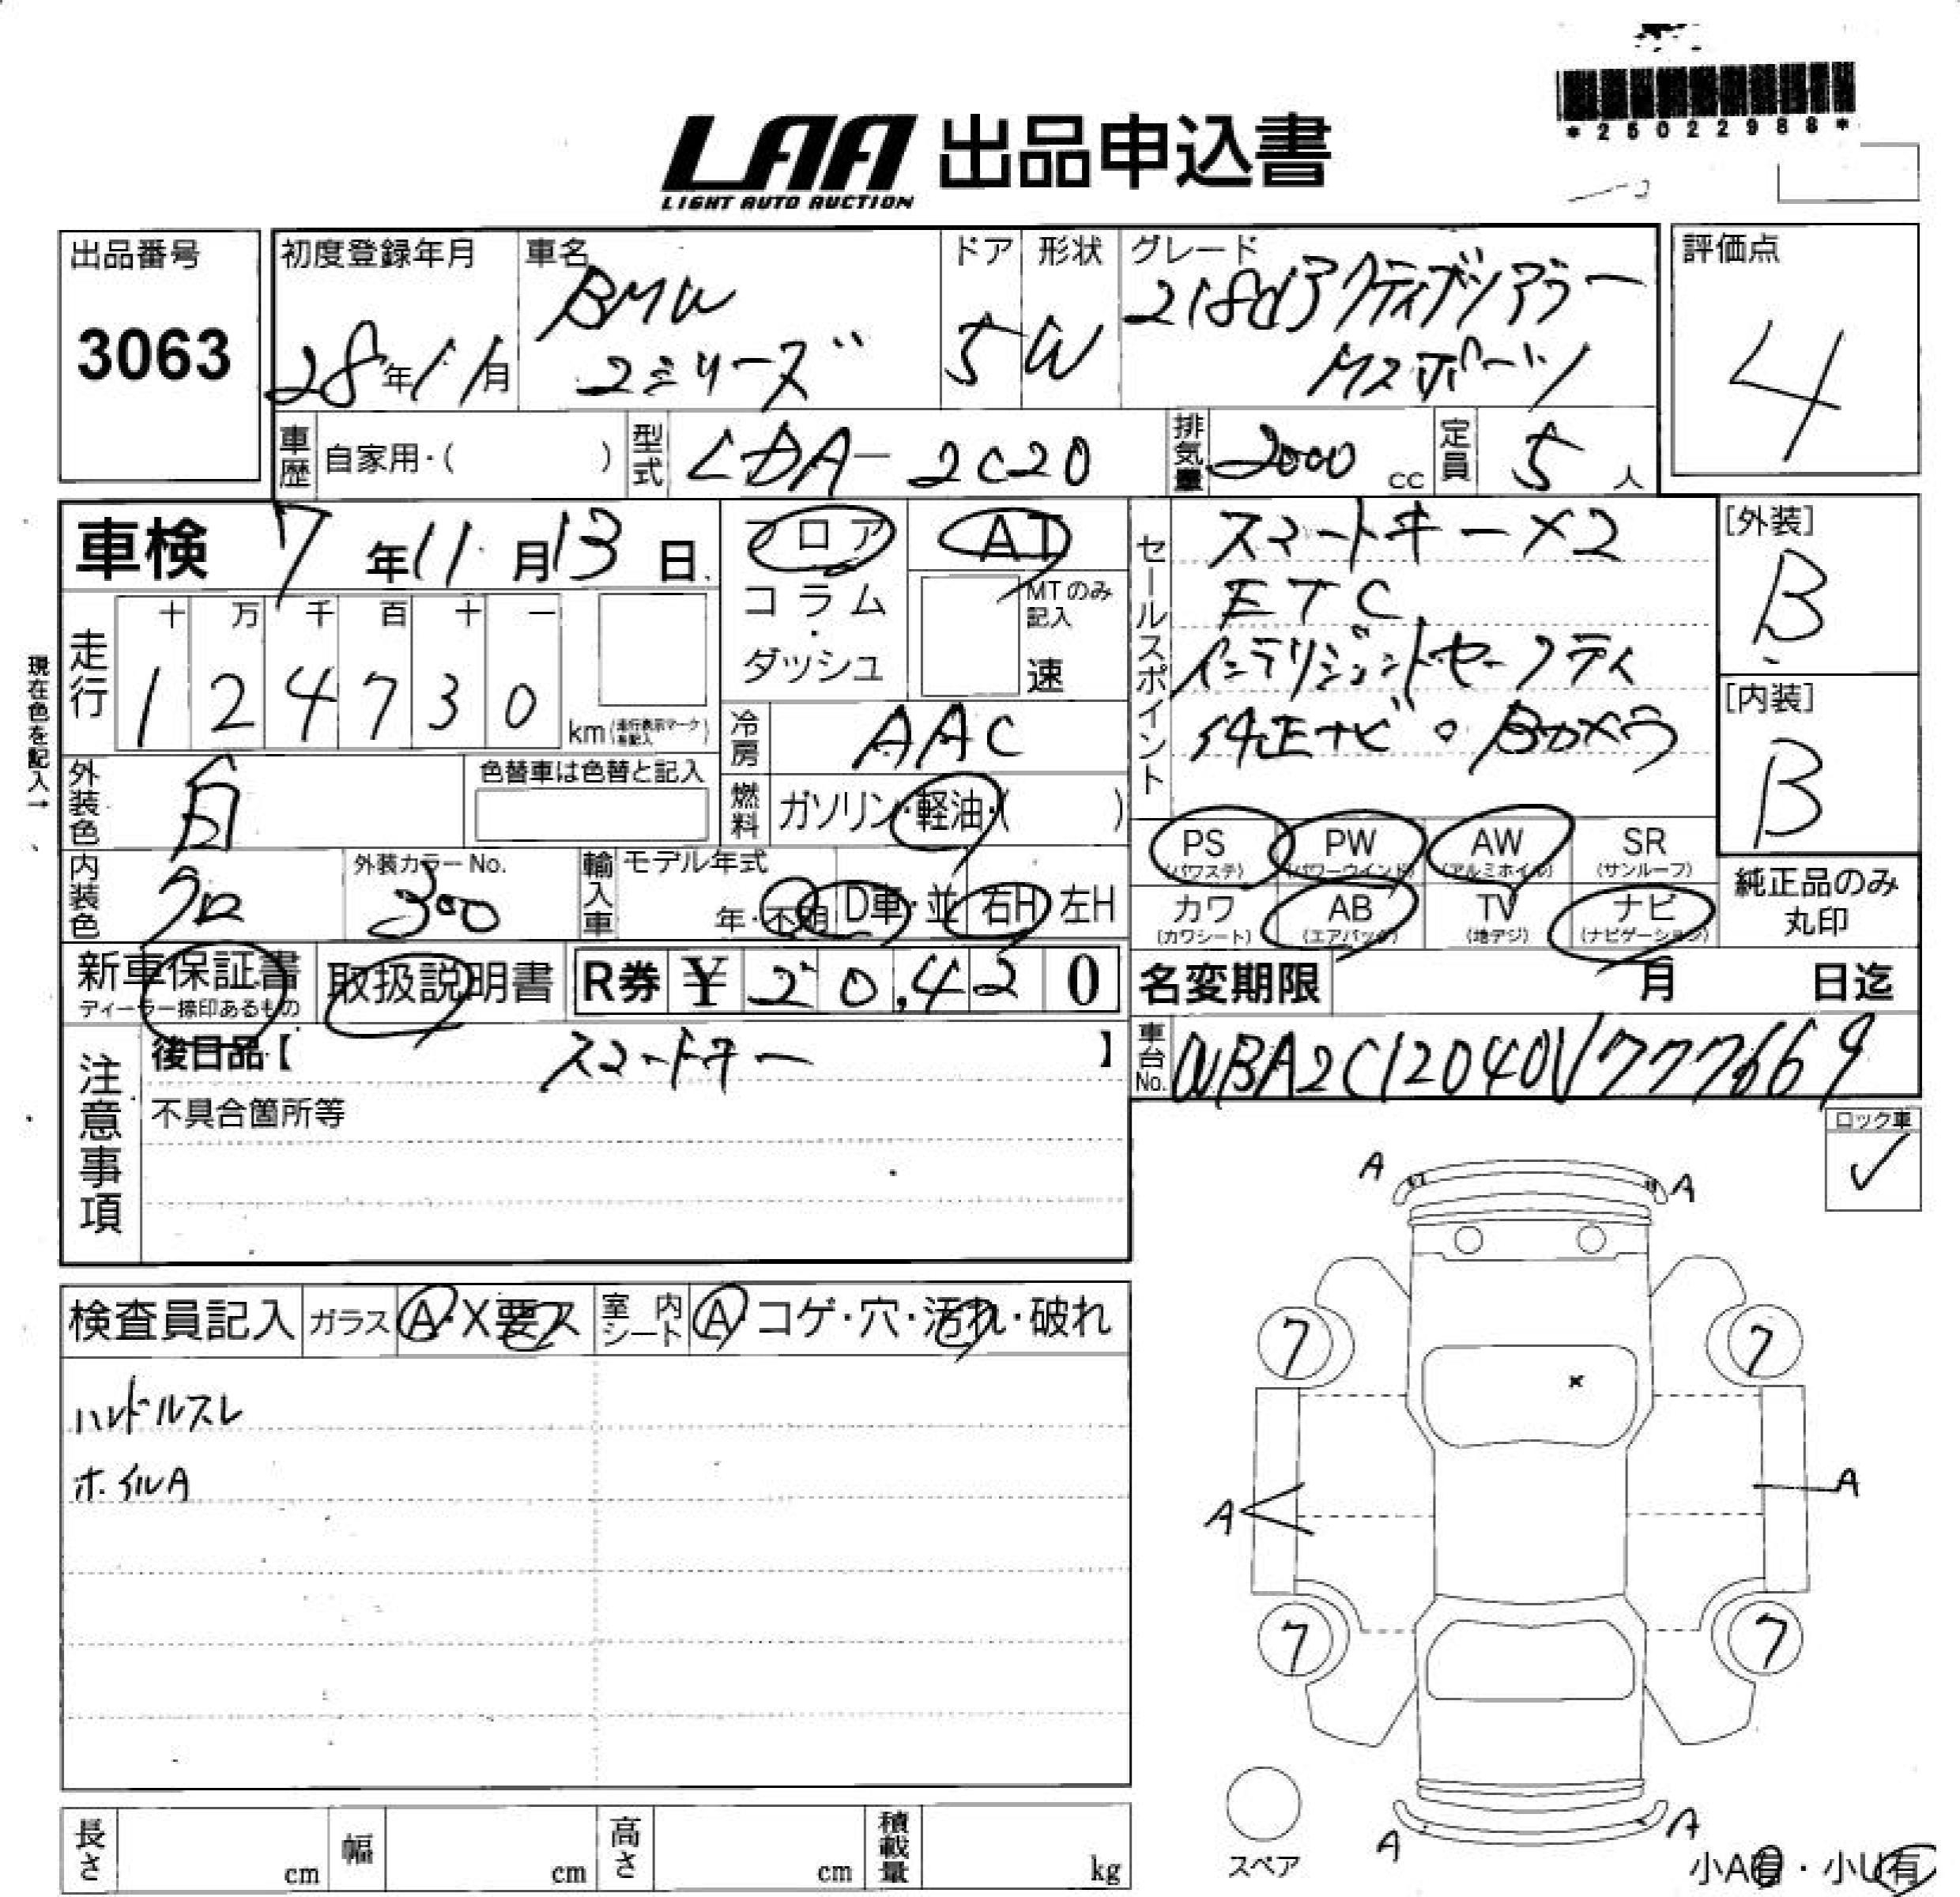 *25022988*
LAA 出品申込書
LIGHT AUTO AUCTION
出品番号
3063
初度登録年月
28年11月
車名
BMW
2シリーズ
ドア
5
形状
W
グレード
218dアクティブツアラー
Mスポーツ
評価点
4
車歴 自家用・( )
型式 LDA-2C20
排気量 2000 cc
定員 5 人
車検 7年11月13日
フロア
コラム
・
ダッシュ
AT
MTのみ
記入
速
セールスポイント
スマートキー×2
ETC
インテリジェントセーフティ
純正ナビ。Bカメラ
[外装]
B
[内装]
B
現在色を記入→
走行
十 万 千 百 十 一
1 2 4 7 3 0
km (走行表示マークを記入)
冷房 AAC
外装色 白
色替車は色替と記入
燃料 ガソリン・軽油・( )
PS (パワステ)
PW (パワーウインド)
AW (アルミホイル)
SR (サンルーフ)
カワ (カワシート)
AB (エアバッグ)
TV (地デジ)
ナビ (ナビゲーション)
純正品のみ
丸印
内装色 クロ
外装カラーNo.
300
輸入車
モデル年式
年・不明
D車・並
右H 左H
新車保証書
ディーラー捺印あるもの
取扱説明書
R券 ¥ 20,420
名変期限 月 日迄
注意事項
後日品【 スマートキー 】
不具合箇所等
車台No. WBA2C12040V777669
ロック車
✓
検査員記入
ガラス A・X要ス
室内シート A・コゲ・穴・汚れ・破れ
ハンドルスレ
ホイルA
A A
7 7
×
A A
7 7
スペア
A A
小A有・小U有
長さ cm
幅 cm
高さ cm
積載量 kg